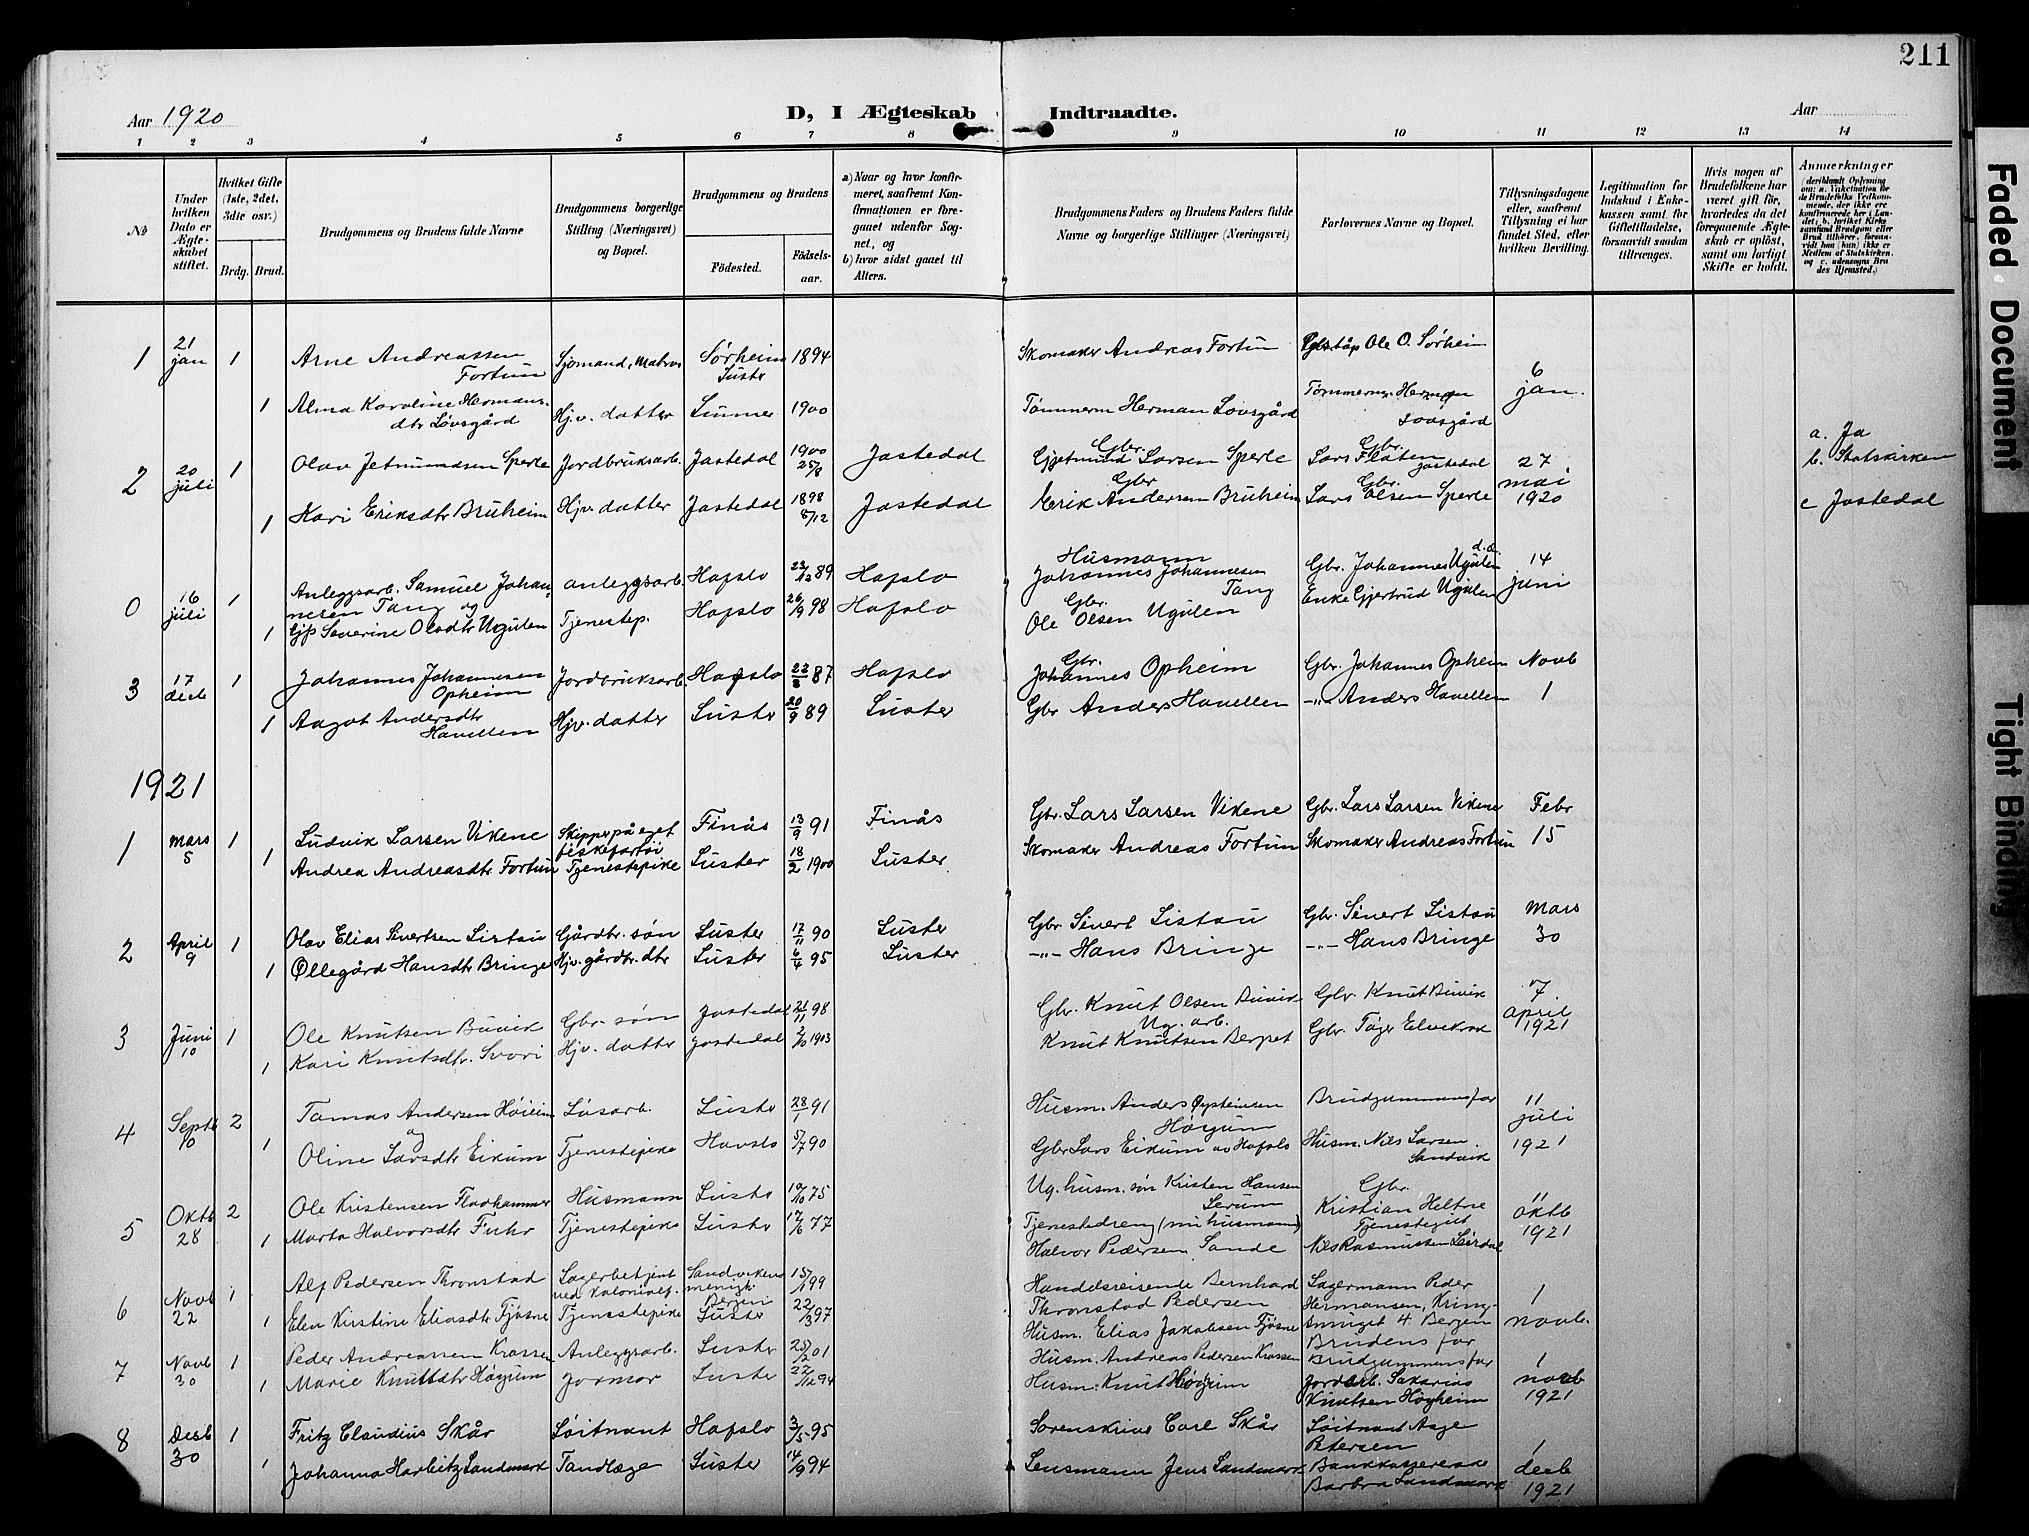 211
Aar 1920
D, I Ægteskab Indtraadte.
Aar
1 2 3 4 5 6 7 8 9 10 11 12 13 14
No
Under hvilken Dato er Ægteskabet stiftet.
Hvilket Gifte (1ste, 2det, 3die osv.)
Brdg. Brud.
Brudgommens og Brudens fulde Navne
Brudgommens borgerlige Stilling (Næringsvei) og Bopæl.
Brudgommens og Brudens
Fødested. Fødsels-aar.
a) Naar og hvor konfirmeret, saafremt Konfirmationen er foregaaet udenfor Sognet, og
b) hvor sidst gaaet til Alters.
Brudgommens Faders og Brudens Faders fulde Navne og borgerlige Stillinger (Næringsvei)
Forlovernes Navne og Bopæl.
Tillysningsdagene eller, saafremt Tillysning ei har fundet Sted, efter hvilken Bevilling.
Legitimation for Indskud i Enkekassen samt for Giftetilladelse, forsaavidt saadan tiltrænges.
Hvis nogen af Brudefolkene har været gift før, hvorledes da det foregaaende Ægteskab er opløst, samt om lovligt Skifte er holdt.
Anmerkninger
(deriblandt Oplysning om: a. Vakcination for de Brudefolks Vedkommende, der ikke ere konfirmerede her i Landet; b. hvilket Kirkesamfund Brudgom eller Brud tilhører, forsaavidt han (hun) ikke er Medlem af Statskirken, og c. udensogns Brudes Hjemsted.)
1 21 jan 1 Arne Andreassen Fortun Sjømand, Matros Sørheim Luster 1894 Skomaker Andreas Fortun Ole O. Sørheim
6 jan.
1 Alma Karoline Hermansdtr Lövsgård Hjv. datter 1900 Tømmerm Herman Lövsgård Tømmerm. Herman Lovsgård
2 20 juli 1 Olav Jetmundsen Sperle Jordbruksarb. Jostedal 1900 25/8 Jostedal Gbr. Gjetmund Larsen Sperle Gbr. Lars Flaten Jostedal 27 mai 1920 a. Ja b. Statskirken
1 Kari Eriksdtr Bruheim Hjv. datter Jostedal 1898 8/12 Jostedal Gbr Erik Andersen Bruheim Gbr. Lars Olsen Sperle c Jostedal
0 16 juli 1 Anleggsarb. Samuel Johannesen Tang og anleggsarb. Hafslo 89 Hafslo Husmann Johannes Johannesen Tang Gbr. Johannes Ugulen d.æ. 14 juni
1 Severine Olsdtr Ugulen Tjenestep. Hafslo 26/9 98 Hafslo Gbr. Ole Olsen Ugulen Enke Gjertrud Ugulen
3 17 decb 1 Johannes Johannesen Opheim Jordbruksarb. Hafslo 87 Hafslo Gbr. Johannes Opheim Gbr. Johannes Opheim Novb 1
1 Aagot Andersdtr Havellen Hjv. datter Luster 20/9 89 Luster Gbr Anders Havellen -"- Anders Havellen
1921
1 Mars 5 1 Ludvik Larsen Vikene Skipper på eget fiskefartöi Finås 13/9 91 Finås Gbr. Lars Larsen Vikene Gbr. Lars Larsen Vikene Febr 15
1 Andrea Andreasdtr Fortun Tjenestepike Luster 18/2 1900 Luster Skomaker Andreas Fortun Skomaker Andreas Fortun
2 April 9 1 Olav Elias Sivertsen Listau Gårdbr. søn Luster 17/11 90 Luster Gbr. Sivert Listau Gbr. Sivert Listau Mars 30
1 Øllegård Hansdtr Bringe Hjv. gårdbr. dtr Luster 6/4 95 Luster -"- Hans Bringe -"- Hans Bringe
3 Juni 10 1 Ole Knutsen Buvik Gbr. søn Jostedal 21/11 98 Gbr. Knut Olsen Buvik Gbr. Knut Buvik 7 april 1921
1 Kari Knutsdtr. Svori Hjv. datter Jostedal 1903 Ug. arb. Knut Knutsen Berget Gbr. Tøger Elvekrok
4 Septb 10 2 Tomas Andersen Höieim og Løsarb. Luster 28/1 91 Husm. Anders Øysteinsen Høyum Brudgummens far 11 juli 1921
1 Oline Larsdtr Eikum Tjenestepike Havslo 5/7 90 Gbr Lars Eikum av Hafslo Husm. Nils Larsen Sandvik
5 Oktb 28 2 Ole Kristensen Fladhammer Husmann Luster 19/10 75 Ug. husm. søn Kristen Hansen Gbr. Kristian Heltne 11 oktb 1921
1 Marta Halvorsdtr Fuhr Tjenestepike Luster 17/6 77 Tjenestedreng (nu husmann) Halvor Pedersen Sande Tjenestegut Nils Rasmussen Leirdal
6 Novb 22 1 Alf Pedersen Thronstad Lagerbetjent ved Kolonialf. Sandvikens menigh. Bergen 99 Handelsreisende Bernhard Thronstad Pedersen Lagermann Peder Hermansen, 4 Bergen 1 novb.
1 Elen Kirstine Eliasdtr Fjøsne Tjenestepike Luster 22/3 97 Husm. Elias Jakobsen Fjøsne Brudens far
7 Novb 30 1 Peder Andreassen Krossen Anleggsarb. Luster 25/2 01 Husm. Andreas Pedersen Krossen Brudgummens far 1 novb 1921
1 Marie Knutsdtr Høyum Jormor Luster 27/12 94 Husm. Knut Høyum Jordarb. Sakarias Knutsen Höyheim
8 Desb 30 1 Fritz Claudius Skår Löitnant Hafslo 3/5 95 Sorenskriver Carl Skår Löitnant Aage Petersen 1 decb 1921
1 Johanna Harbitz Landmark Tandlæge Luster 14/9 94 Lensmann Jens Landmark Bankkassererske Barbra Landmark
Faded Document
Tight Binding